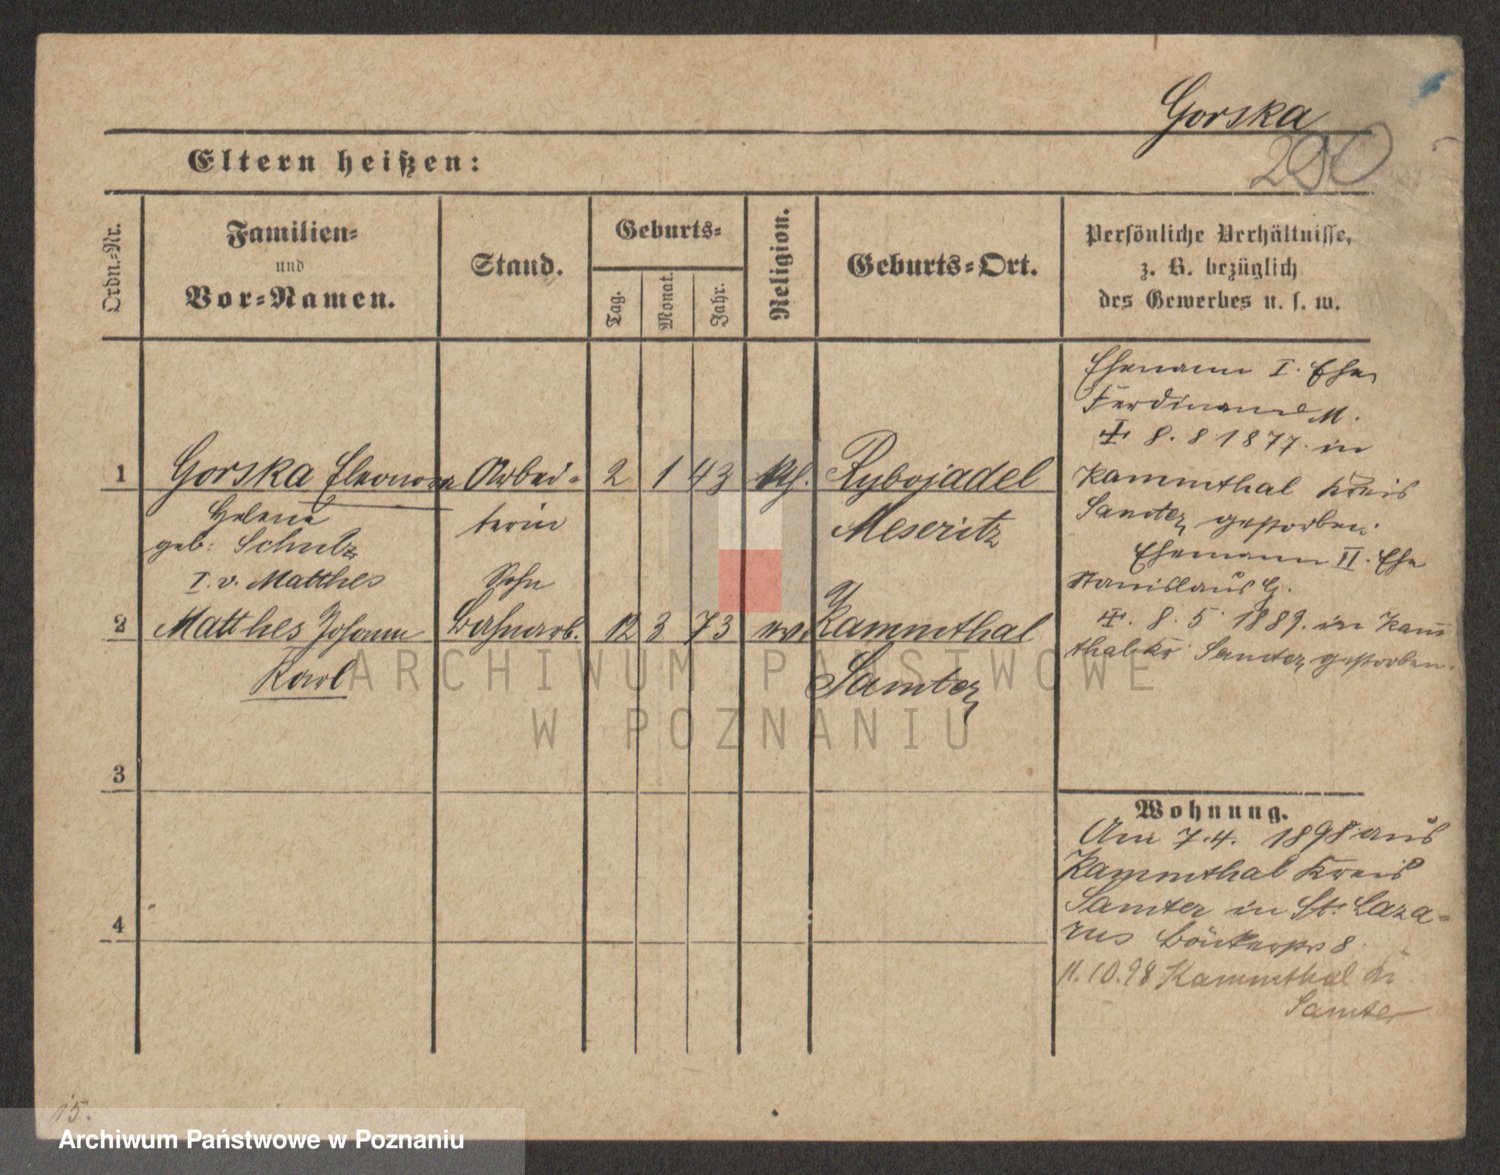 Gorska
200
Eltern heißen:
Ordn.-Nr.
Familien-
und
Vor-Namen.
Stand.
Geburts-
Tag.
Monat.
Jahr.
Religion.
Geburts-Ort.
Persönliche Verhältnisse,
z. B. bezüglich
des Gewerbes u. s. w.
1 Gorska Eleonora Arbei- 2 1 43 kth. Rybojadel
Helene terin Meseritz
geb: Schulz
I. v. Matthes Sohn
2 Matthes Johann Bahnarb. 12 3 73 ev. Kammthal
Karl Samter
3
4
Ehemann I. Ehe
Ferdinand M.
8. 8 1877. in
Kammthal Kreis
Samter gestorben.
Ehemann II. Ehe
Stanislaus G.
8. 5. 1889. in Kam̅
thal Kr Samter gestorben.
Wohnung.
Am 7.4. 1898 aus
Kammthal Kreis
Samter in St. Laza-
rus 8
11.10.98 Kammthal Kr
Samter
15.
ARCHIWUM PAŃSTWOWE
W POZNANIU
Archiwum Państwowe w Poznaniu